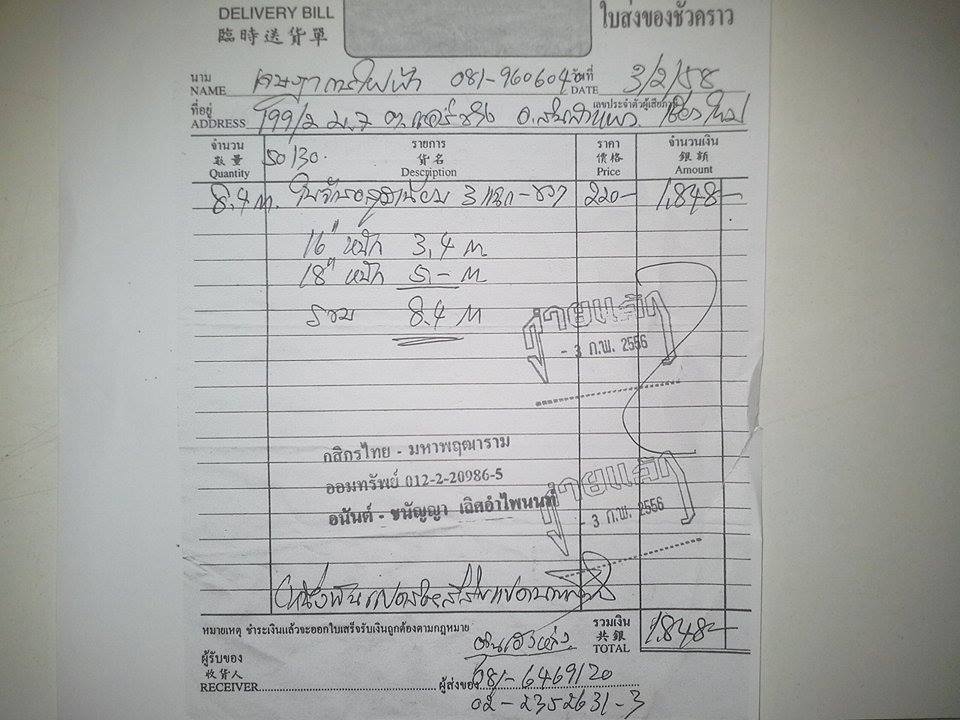 DELIVERY BILL ใบส่งของชั่วคราว
臨時送貨單
นาม วันที่
NAME การไฟฟ้า 081-960604 DATE 3/2/58
ที่อยู่ เลขประจำตัวผู้เสียภาษี
ADDRESS 199/2 ม.7 ต. อ.
จำนวน รายการ ราคา จำนวนเงิน
數量 50/30. 貨名 價格 銀額
Quantity Description Price Amount
8.4 m. 3 แฉก - 220- 1,848-
16" หนัก 3.4 m
18" หนัก 5.- m
รวม 8.4 m
จ่ายแล้ว
- 3 ก.พ. 2556
กสิกรไทย - มหาพฤฒาราม
ออมทรัพย์ 012-2-20986-5
อนันต์ - ชนัญญา เฉิศอำไพนนท์
จ่ายแล้ว
- 3 ก.พ. 2556
(หนึ่งพันแปดร้อยสี่สิบแปดบาทถ้วน)
หมายเหตุ ชำระเงินแล้วจะออกใบเสร็จรับเงินถูกต้องตามกฎหมาย รวมเงิน
共銀 1,848-
TOTAL
ผู้รับของ
收貨人
RECEIVER ผู้ส่งของ 081-6469120
02-2352631-3